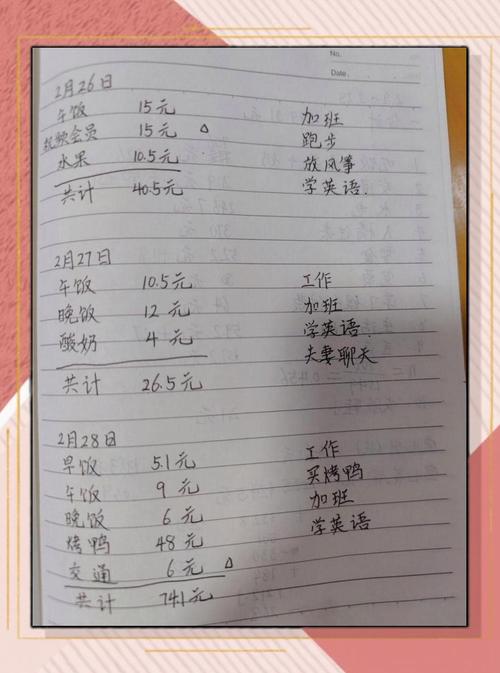 No.
Date.
2月26日
午饭 15元 加班
视频会员 15元 △ 跑步
水果 10.5元 放风筝
共计 40.5元 学英语
2月27日
午饭 10.5元 工作
晚饭 12元 加班
酸奶 4元 学英语
夫妻聊天
共计 26.5元
2月28日
早饭 5.1元 工作
午饭 9元 买烤鸭
晚饭 6元 加班
烤鸭 48元 学英语
交通 6元 △
共计 74.1元